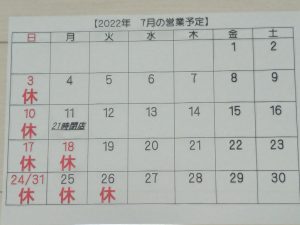 【2022年 7月の営業予定】
日 月 火 水 木 金 土
1 2
3 4 5 6 7 8 9
休
10 11 12 13 14 15 16
休 21時閉店
17 18 19 20 21 22 23
休 休
24/31 25 26 27 28 29 30
休 休 休